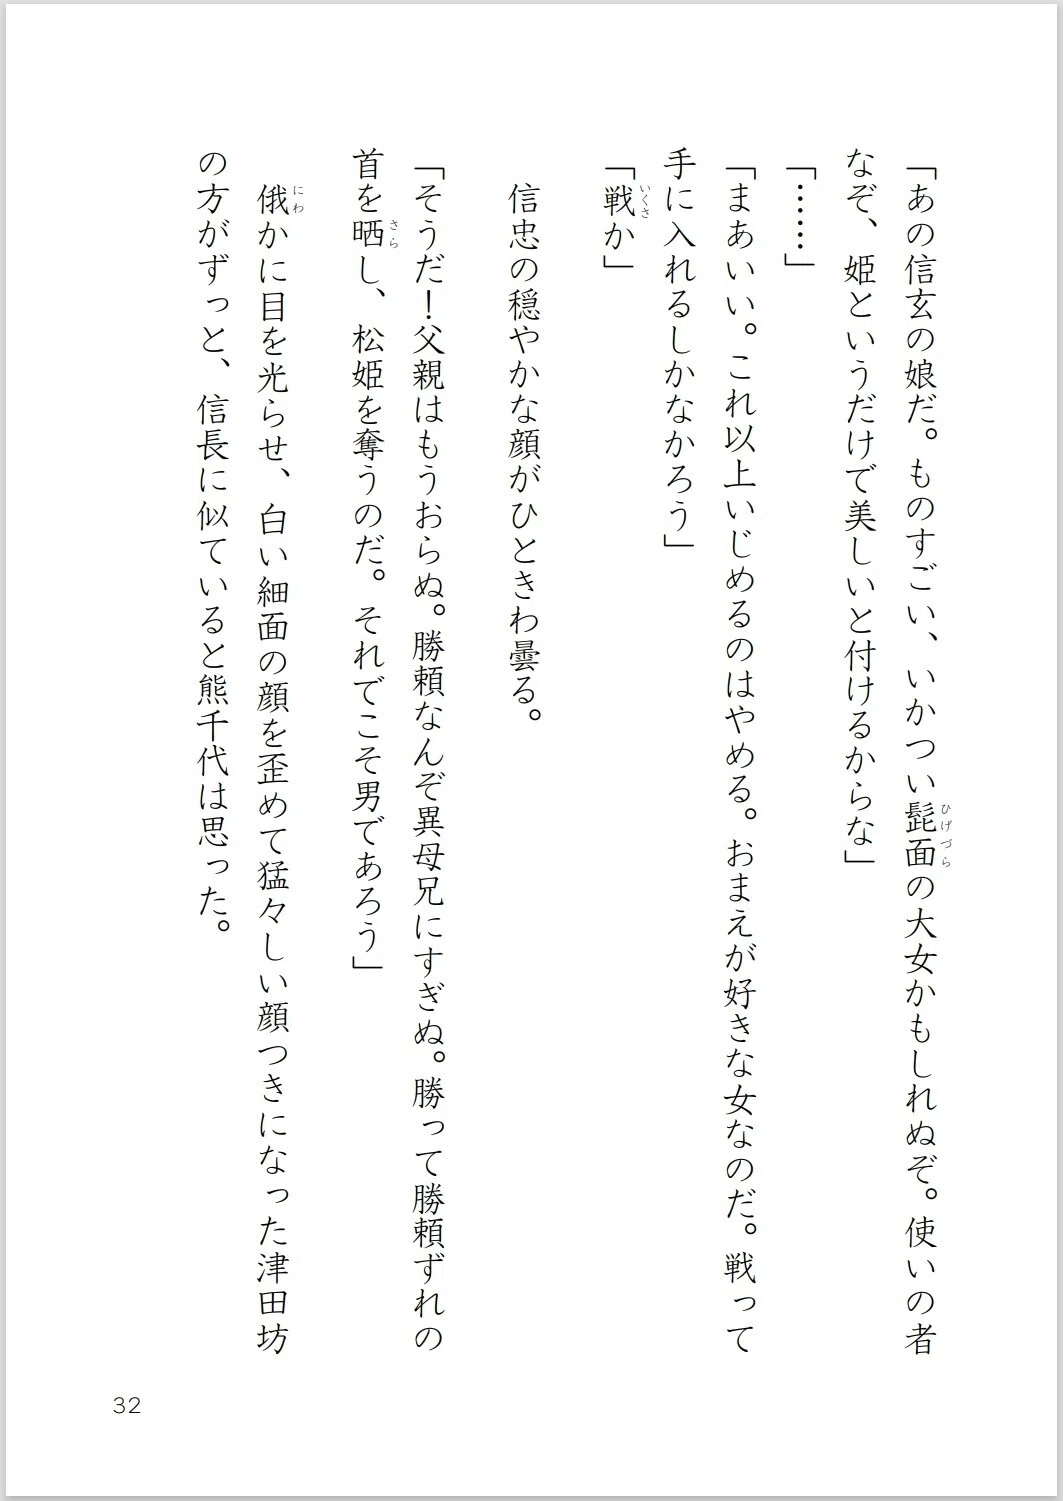 「あの信玄の娘だ。ものすごい、いかつい髭面の大女かもしれぬぞ。使いの者
なぞ、姫というだけで美しいと付けるからな」
「……」
「まあいい。これ以上いじめるのはやめる。おまえが好きな女なのだ。戦って
手に入れるしかなかろう」
「戦か」
信忠の穏やかな顔がひときわ曇る。
「そうだ！父親はもうおらぬ。勝頼なんぞ異母兄にすぎぬ。勝って勝頼ずれの
首を晒し、松姫を奪うのだ。それでこそ男であろう」
俄かに目を光らせ、白い細面の顔を歪めて猛々しい顔つきになった津田坊
の方がずっと、信長に似ていると熊千代は思った。
ひげづら
いくさ
さら
にわ
32